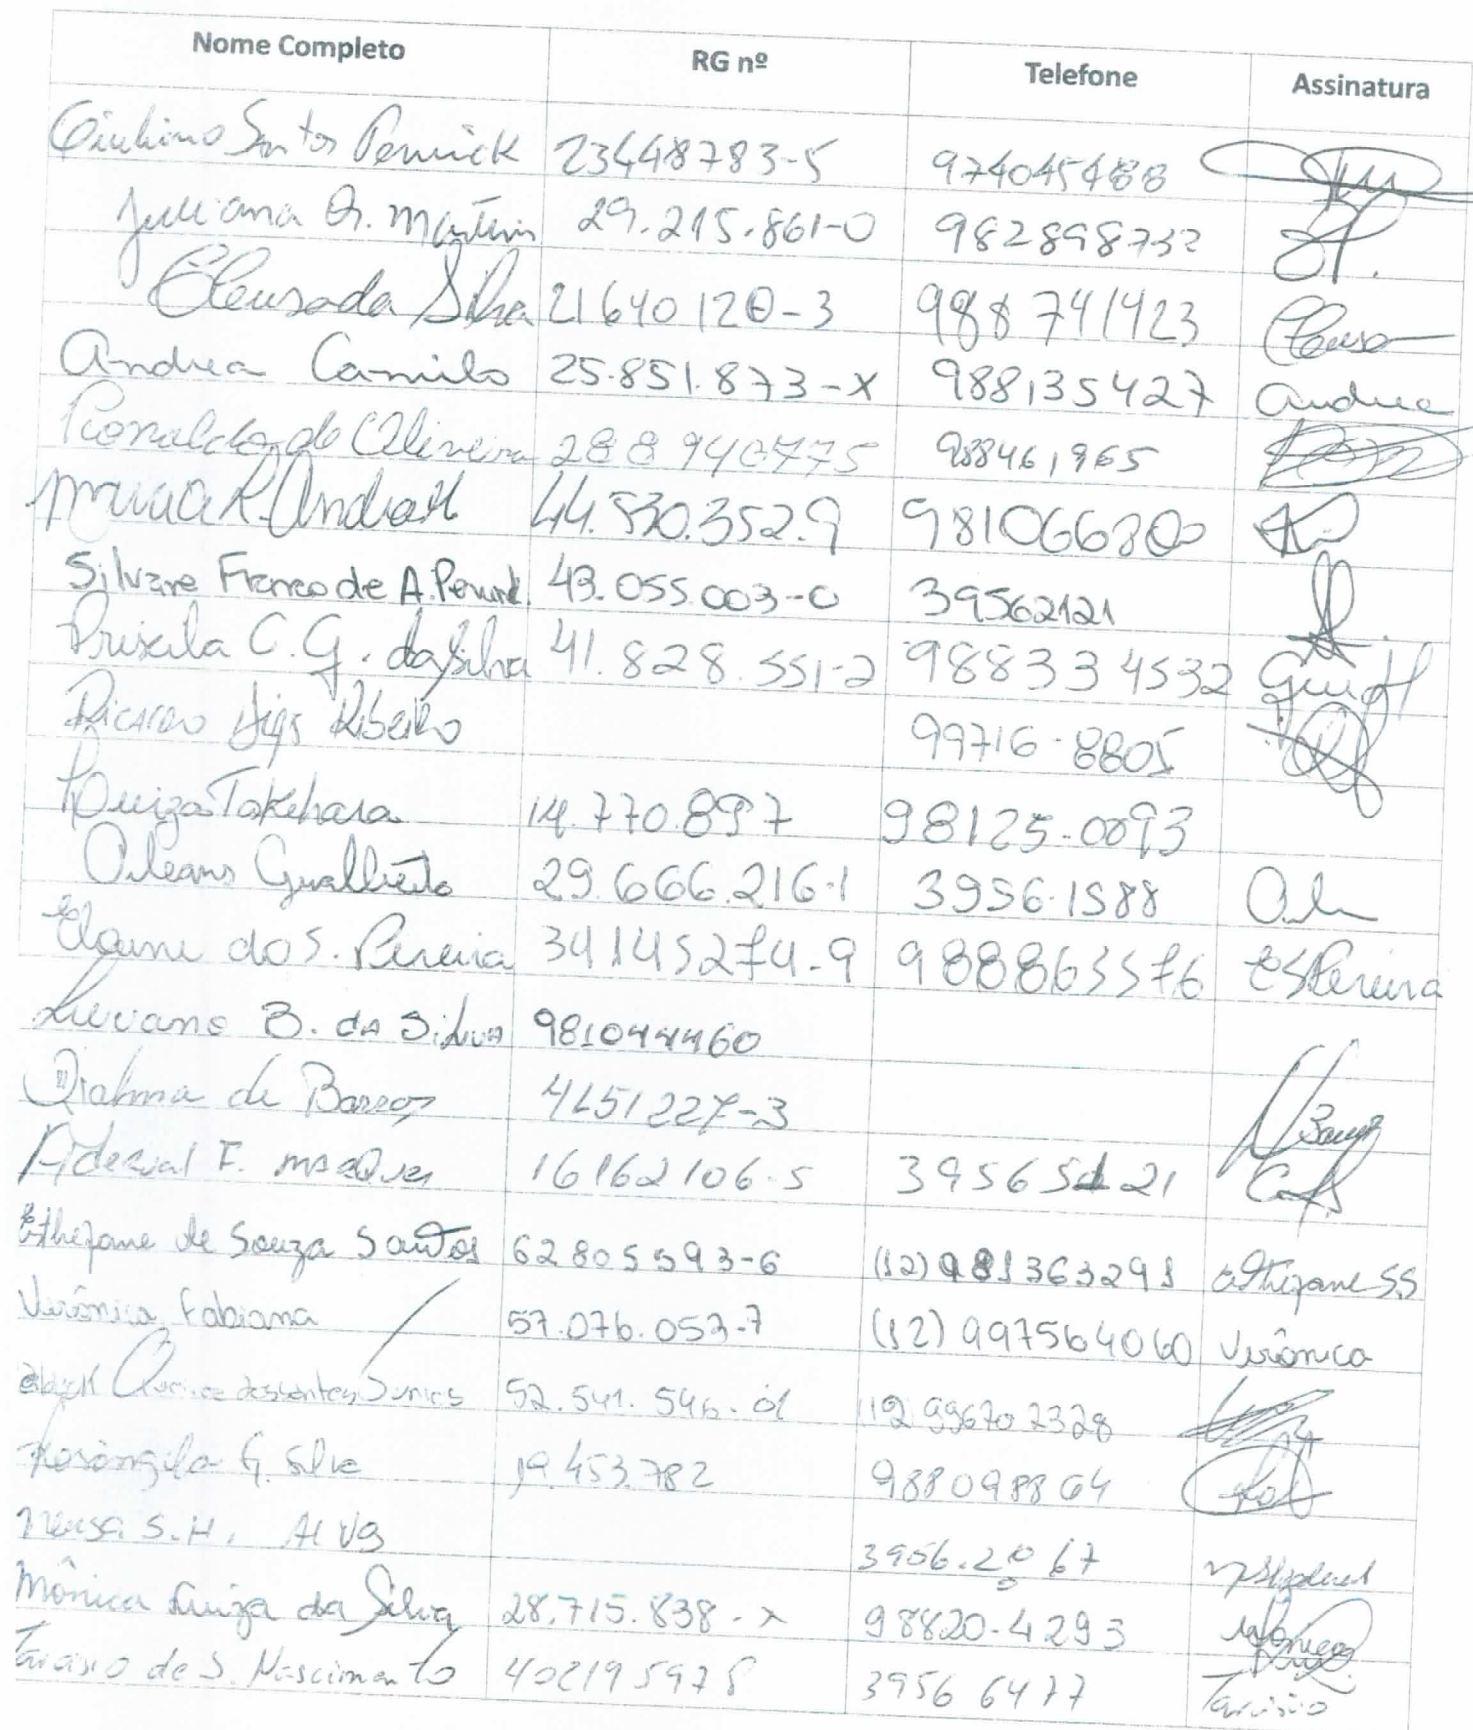 Nome Completo RG nº Telefone Assinatura
Giuliano Santos Penrick 23448783-5 974045488
Juliana A. Martins 29.215.861-0 982898732
Cleusa da Silva 21640120-3 988741423 Cleusa
Andrea Camilo 25.851.873-X 988135427 Andrea
Ronaldo de Oliveira 288940775 988461965
Maria R. Andrade 44.530.352.9
Silvane Franco de A. Penrick 43.055.003-0 39562121
Priscila C. G. da Silva 41.828.551-2 988334532
Ricardo Dias Ribeiro 99716-8805
Luiza Takehara 14.770.897 98125-0093
Orleans Gualberto 29.666.216-1 3956-1588
Elaine dos S. Pereira 34145274-9 988863576 ESPereira
Luciano B. da Silva 981044460
Djalma de Barros 4151227-3
Aderval F. Marques 16162106-5
Esthefane de Souza Santos 62805593-6 (12)981363291 Esthefane SS
Verônica Fabiana 57.076.053-7 (12)997564060 Verônica
dos Santos 52.541.546-01 12 996702328
Rosângela G. Silva 19.453.782 988098864
Neusa S. H. Alves 3956.2067
Mônica Luiza da Silva 28.715.838-X 98820-4293 Mônica
Tarcisio de S. Nascimento 402195978 3956 6477 Tarcisio